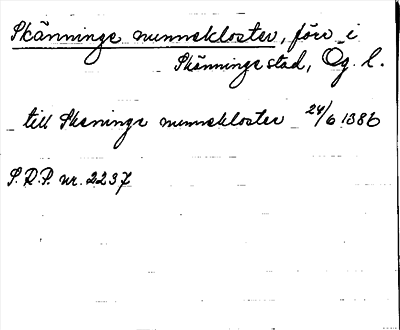 Skänninge nunnekloster, förr i
Skänninge stad, Ög. l.
till Skeninge nunnekloster 24/6 1386
S.R.P. nr. 2237